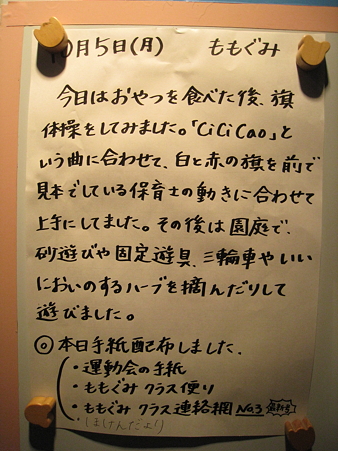 10月5日(月) ももぐみ
今日はおやつを食べた後、旗
体操をしてみました。「CiCiCao」と
いう曲に合わせて、白と赤の旗を前で
見本でしている保育士の動きに合わせて
上手にしてました。その後は園庭で、
砂遊びや固定遊具、三輪車やいい
においのするハーブを摘んだりして
遊びました。
◎本日手紙配布しました。
・運動会の手紙
・ももぐみ クラス便り
・ももぐみ クラス連絡網 No.3
・ほけんだより